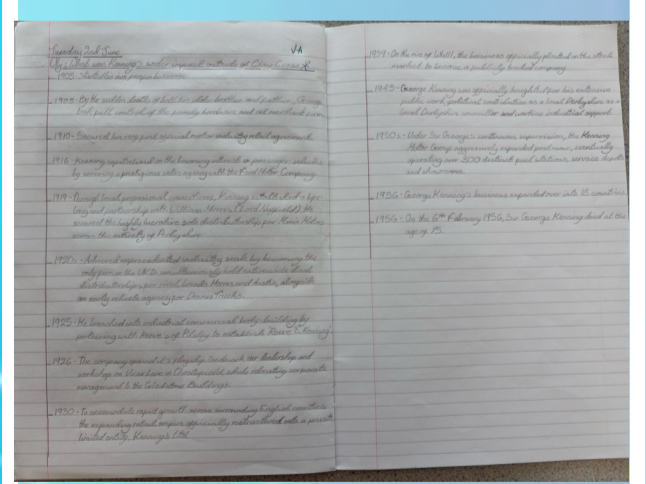 Tuesday 2nd June
VA
L.Q: What was Kenning's wider impact outside of Clay Cross?
1905- Started his paper business
1908- By the sudden death of both his older brother and father, George
took full control of the family hardware and oil merchant firm.
1910- Secured his very first official motor industry retail agreement.
1916- Kenning capitalised on the booming interest in passenger vehicles
by securing a prestigious sales agency with the Ford Motor Company.
1919- Through local professional connections, Kenning established a life-
long partnership with William Morris (Lord Nuffield). He
secured the highly lucrative sole distributorship for Morris Motors
across the entirety of Derbyshire.
1920s- Achieved unprecedented industry scale by becoming the
only firm in the UK to simultaneously hold nationwide
distributorships for rival brands Morris and Austin, alongside
an early vehicle agency for Dennis Trucks.
1925- He branched into industrial commercial body-building by
partnering with Reeve's of Pilsley to establish 'Reeve & Kenning'.
1926- The company opened its flagship landmark car dealership and
workshop on Vicar Lane in Chesterfield, while relocating corporate
management to the Gladstone Buildings.
1930- To accommodate rapid growth across surrounding English counties
the expanding retail empire officially restructured into a private
limited entity, Kenning's Ltd.
1939- On the eve of WWII, the business officially floated on the stock
market to become a publicly traded company.
1943- George Kenning was officially knighted for his extensive
public work, political contribution as a local Derbyshire
local Derbyshire councillor and wartime industrial support.
1950s- Under Sir George's continuous supervision, the Kenning
Motor Group aggressively expanded nationwide, eventually
operating over 300 distinct fuel stations, service depots
and showrooms.
1956- George Kenning's business expanded over into 15 countries.
1956- On the 6th February 1956, Sir George Kenning died at the
age of 75.